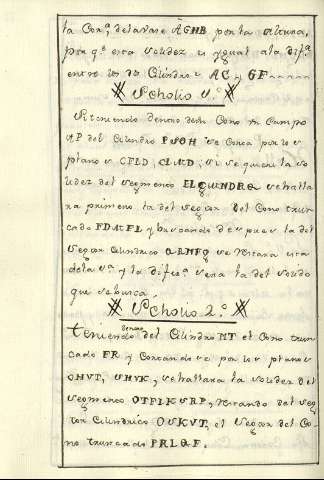 la Con.ª dela vase AGHB por la altura,
por q.e esta solidez es ygual ala dif.ª
entre los dos Cilindros AC y GF
Scholio 1.º
Si teniendo dentro del Cono un Campo
AP del Cilindro PSOH se Corta por los
planos CFLD, si se quiere la so
lidez del segmento se halla
ra primero la del sector del Cono trun
cado y buscando despues la del
sector Cilindrico QRNFG se restara esta
dela 1.ª y la difer.ª sera la del solido
que se busca.
Scholio 2.º
teniendo dentro del Cilindro NT el Cono trun
cado FR y Cortando se por los planos
OHVT, SHYK, se hallara la solidez del
segmento OTFLKSRP, restando del sec
tor Cilindrico OSKVT, el sector del Co
no truncado PRLQF.